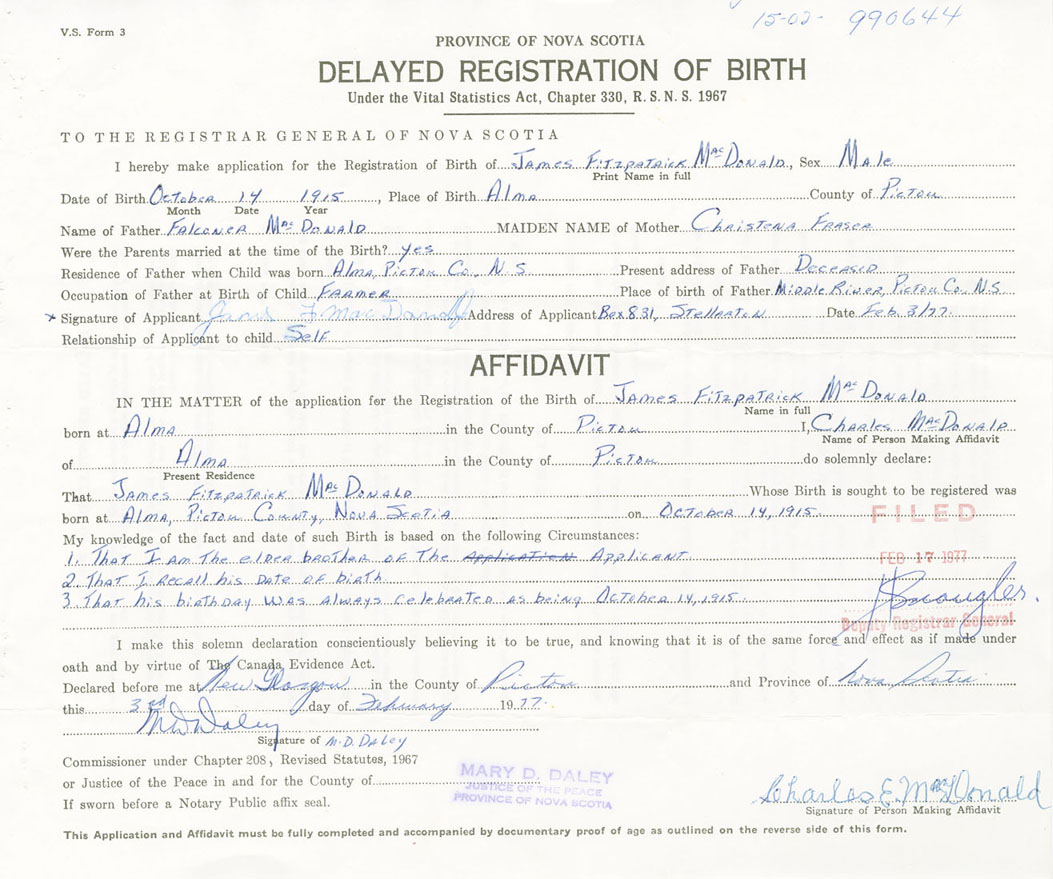 V.S. Form 3
15-02- 990644
PROVINCE OF NOVA SCOTIA
DELAYED REGISTRATION OF BIRTH
Under the Vital Statistics Act, Chapter 330, R. S. N. S. 1967
TO THE REGISTRAR GENERAL OF NOVA SCOTIA
I hereby make application for the Registration of Birth of James Fitzpatrick MacDonald, Sex Male
Print Name in full
Date of Birth October 14 1915, Place of Birth Alma County of Pictou
Month Date Year
Name of Father Falconer MacDonald MAIDEN NAME of Mother Christena Fraser
Were the Parents married at the time of the Birth? yes
Residence of Father when Child was born Alma, Pictou Co., N.S Present address of Father Deceased
Occupation of Father at Birth of Child Farmer Place of birth of Father Middle River, Pictou Co. N.S
x Signature of Applicant James F MacDonald Address of Applicant Box 831, Stellarton Date Feb. 3/77.
Relationship of Applicant to child Self
AFFIDAVIT
IN THE MATTER of the application for the Registration of the Birth of James Fitzpatrick MacDonald
Name in full
born at Alma in the County of Pictou I, Charles MacDonald
Name of Person Making Affidavit
of Alma in the County of Pictou do solemnly declare:
Present Residence
That James Fitzpatrick MacDonald Whose Birth is sought to be registered was
born at Alma, Pictou County, Nova Scotia on October 14, 1915.
FILED
My knowledge of the fact and date of such Birth is based on the following Circumstances:
1. That I am the elder brother of the Application Applicant
FEB 17 1977
2. That I recall his date of birth
3. That his birthday was always celebrated as being October 14, 1915.
Deputy Registrar General
I make this solemn declaration conscientiously believing it to be true, and knowing that it is of the same force and effect as if made under
oath and by virtue of The Canada Evidence Act.
Declared before me at New Glasgow in the County of Pictou and Province of Nova Scotia
this 3rd day of February 1977.
M D Daley
Signature of M. D. Daley
Commissioner under Chapter 208, Revised Statutes, 1967
or Justice of the Peace in and for the County of
MARY D. DALEY
JUSTICE OF THE PEACE
PROVINCE OF NOVA SCOTIA
If sworn before a Notary Public affix seal.
Charles E. MacDonald
Signature of Person Making Affidavit
This Application and Affidavit must be fully completed and accompanied by documentary proof of age as outlined on the reverse side of this form.